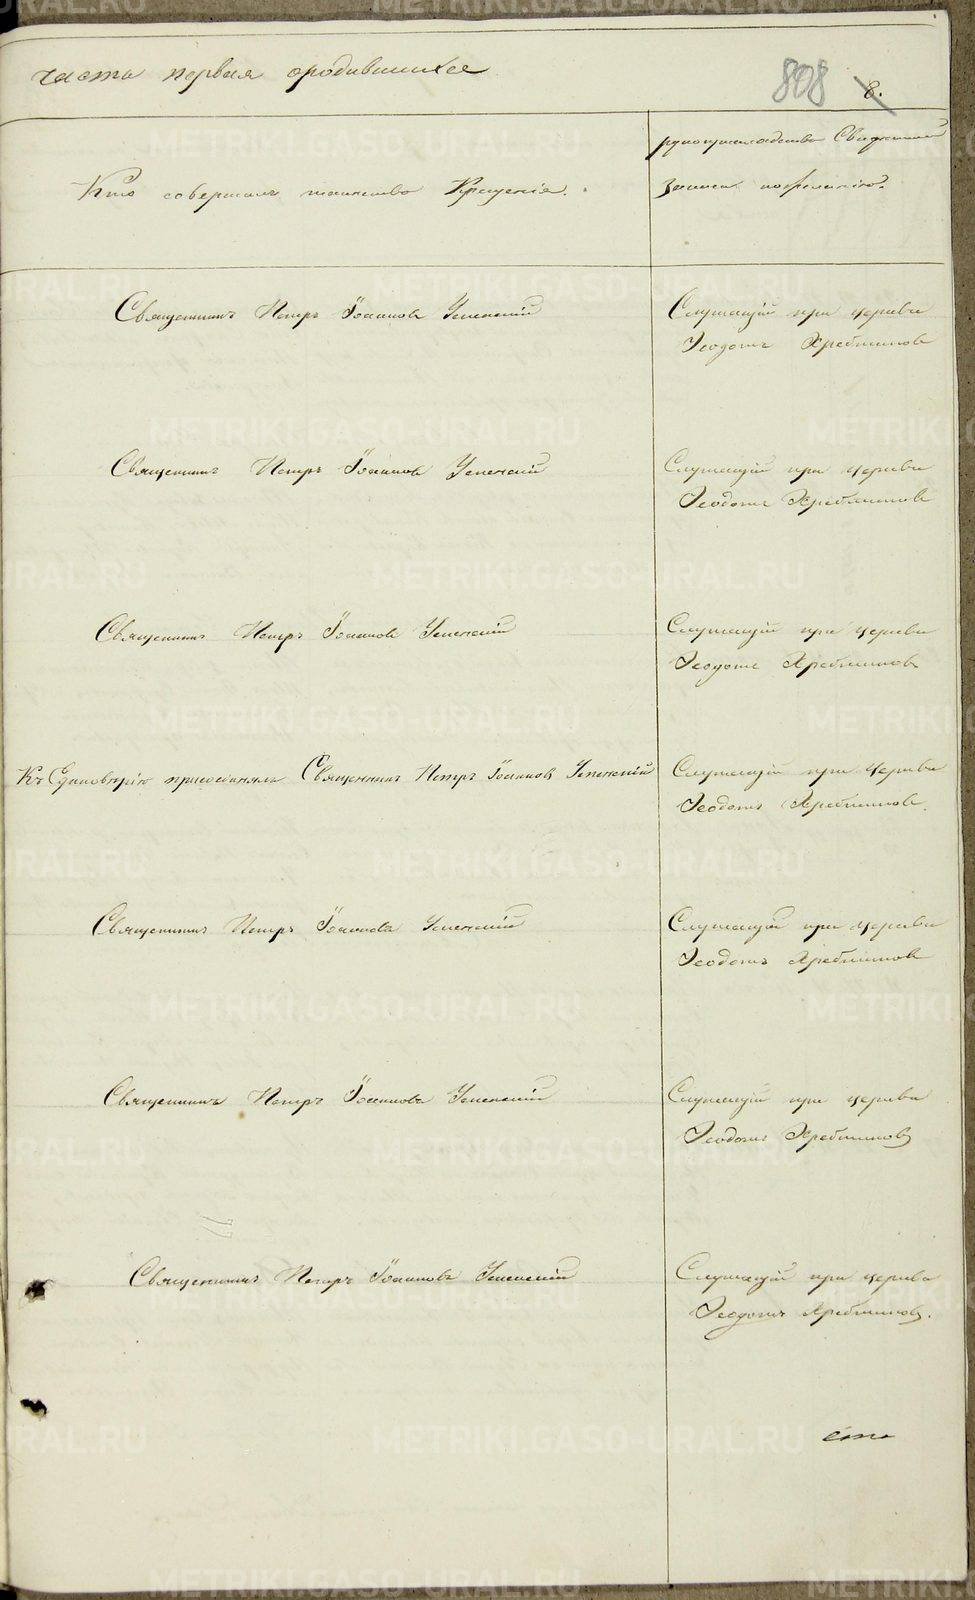 часть первая ородившихся
808 8.
Кто совершалъ таинство Крещенія.
рукоприкладство Свидѣтелей
записи по желанію.
Священникъ Петръ Іоанновъ Успенскій
Служащій при церкви
Ѳеодотъ Хребтиковъ
Священникъ Петръ Іоанновъ Успенскій
Служащій при церкви
Ѳеодотъ Хребтиковъ
Священникъ Петръ Іоанновъ Успенскій
Служащій при церкви
Ѳеодотъ Хребтиковъ
Къ Единовѣрію присоединялъ Священникъ Петръ Іоанновъ Успенскій
Служащій при церкви
Ѳеодотъ Хребтиковъ.
Священникъ Петръ Іоанновъ Успенскій
Служащій при церкви
Ѳеодотъ Хребтиковъ
Священникъ Петръ Іоанновъ Успенскій
Служащій при церкви
Ѳеодотъ Хребтиковъ
Священникъ Петръ Іоанновъ Успенскій
Служащій при церкви
Ѳеодотъ Хребтиковъ.
METRIKI.GASO-URAL.RU